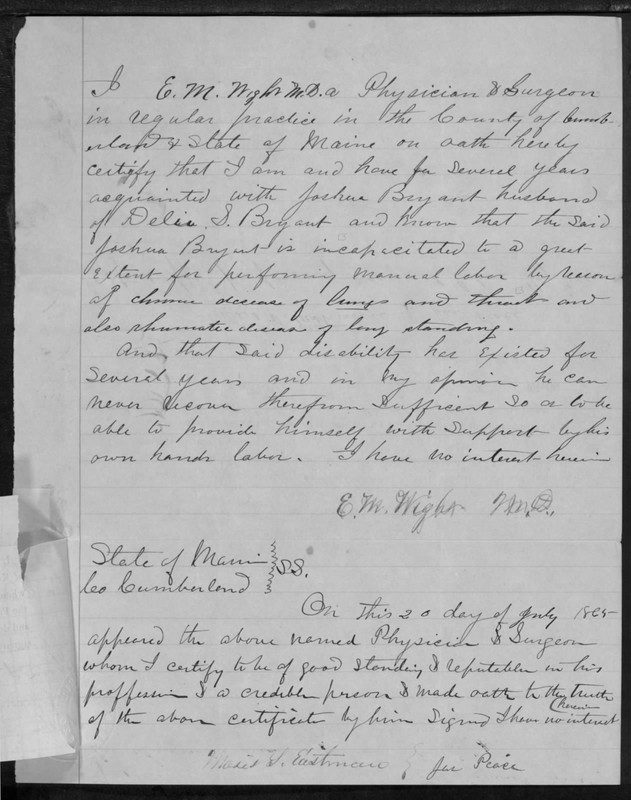 I E. M. Wight M.D. a Physician & Surgeon
in regular practice in the County of Cumb-
erland & State of Maine on oath hereby
certify that I am and have for several years
acquainted with Joshua Bryant husband
of Delia S. Bryant and know that the said
Joshua Bryant is incapacitated to a great
extent for performing manual labor by reason
of chronic disease of lungs and throat and
also rhumatic disease of long standing.
And that said disability has existed for
several years and in my opinion he can
never recover therefrom sufficent so as to be
able to provide himself with support by his
own hands labor. I have no interest herein
E. M. Wight M.D.
State of Maine
Co Cumberland
SS.
On this 20 day of July 1865
appeared the above named Physician & Surgeon
whom I certify to be of good standing & reputable in his
proffession & a credible person & made oath to the truth
of the above certificate by him signed I have no interest
herein
Eastman Jus Peace